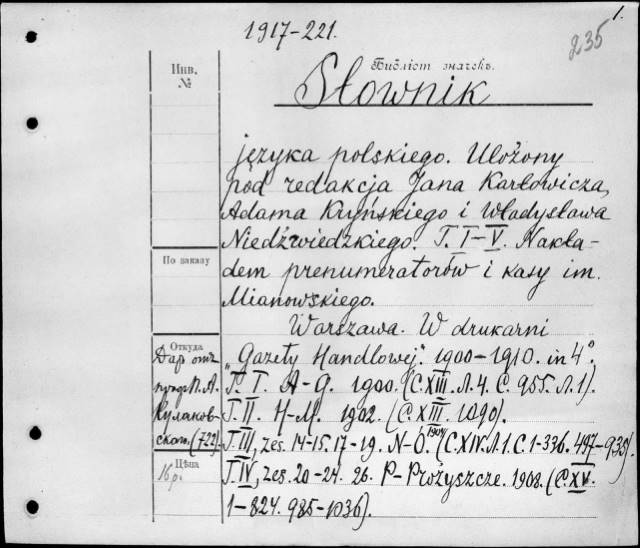 1.
1917-221.
235
Инв.
№
Библіот значекъ.
Słownik
języka polskiego. Ułożony
pod redakcja Jana Karłowicza,
Adama Kryńskiego i Władysława
Niedźwiedzkiego. T. I-V. Nakła-
По заказу
dem prenumeratorów i kasy im.
Mianowskiego.
Warszawa. W drukarni
Откуда
"Gazety Handlowej". 1900-1910. in 4°.
Дар отъ
T. I. A-G. 1900. (C. XIII. Л. 4. C. 955. Л. 1).
П. А.
Кулаков-
T. II. H-M. 1902. (C. XIII. 1090).
скаго. (722)
T. III, zes. 14-15. 17-19. N-Ó. 1904 (C. XIV. Л. 1. C. 1-336. 497-935).
Цѣна
16 р.
T. IV, zes. 20-24. 26. P-Prożyszcze. 1908. (C. XV.
1-824. 985-1036).